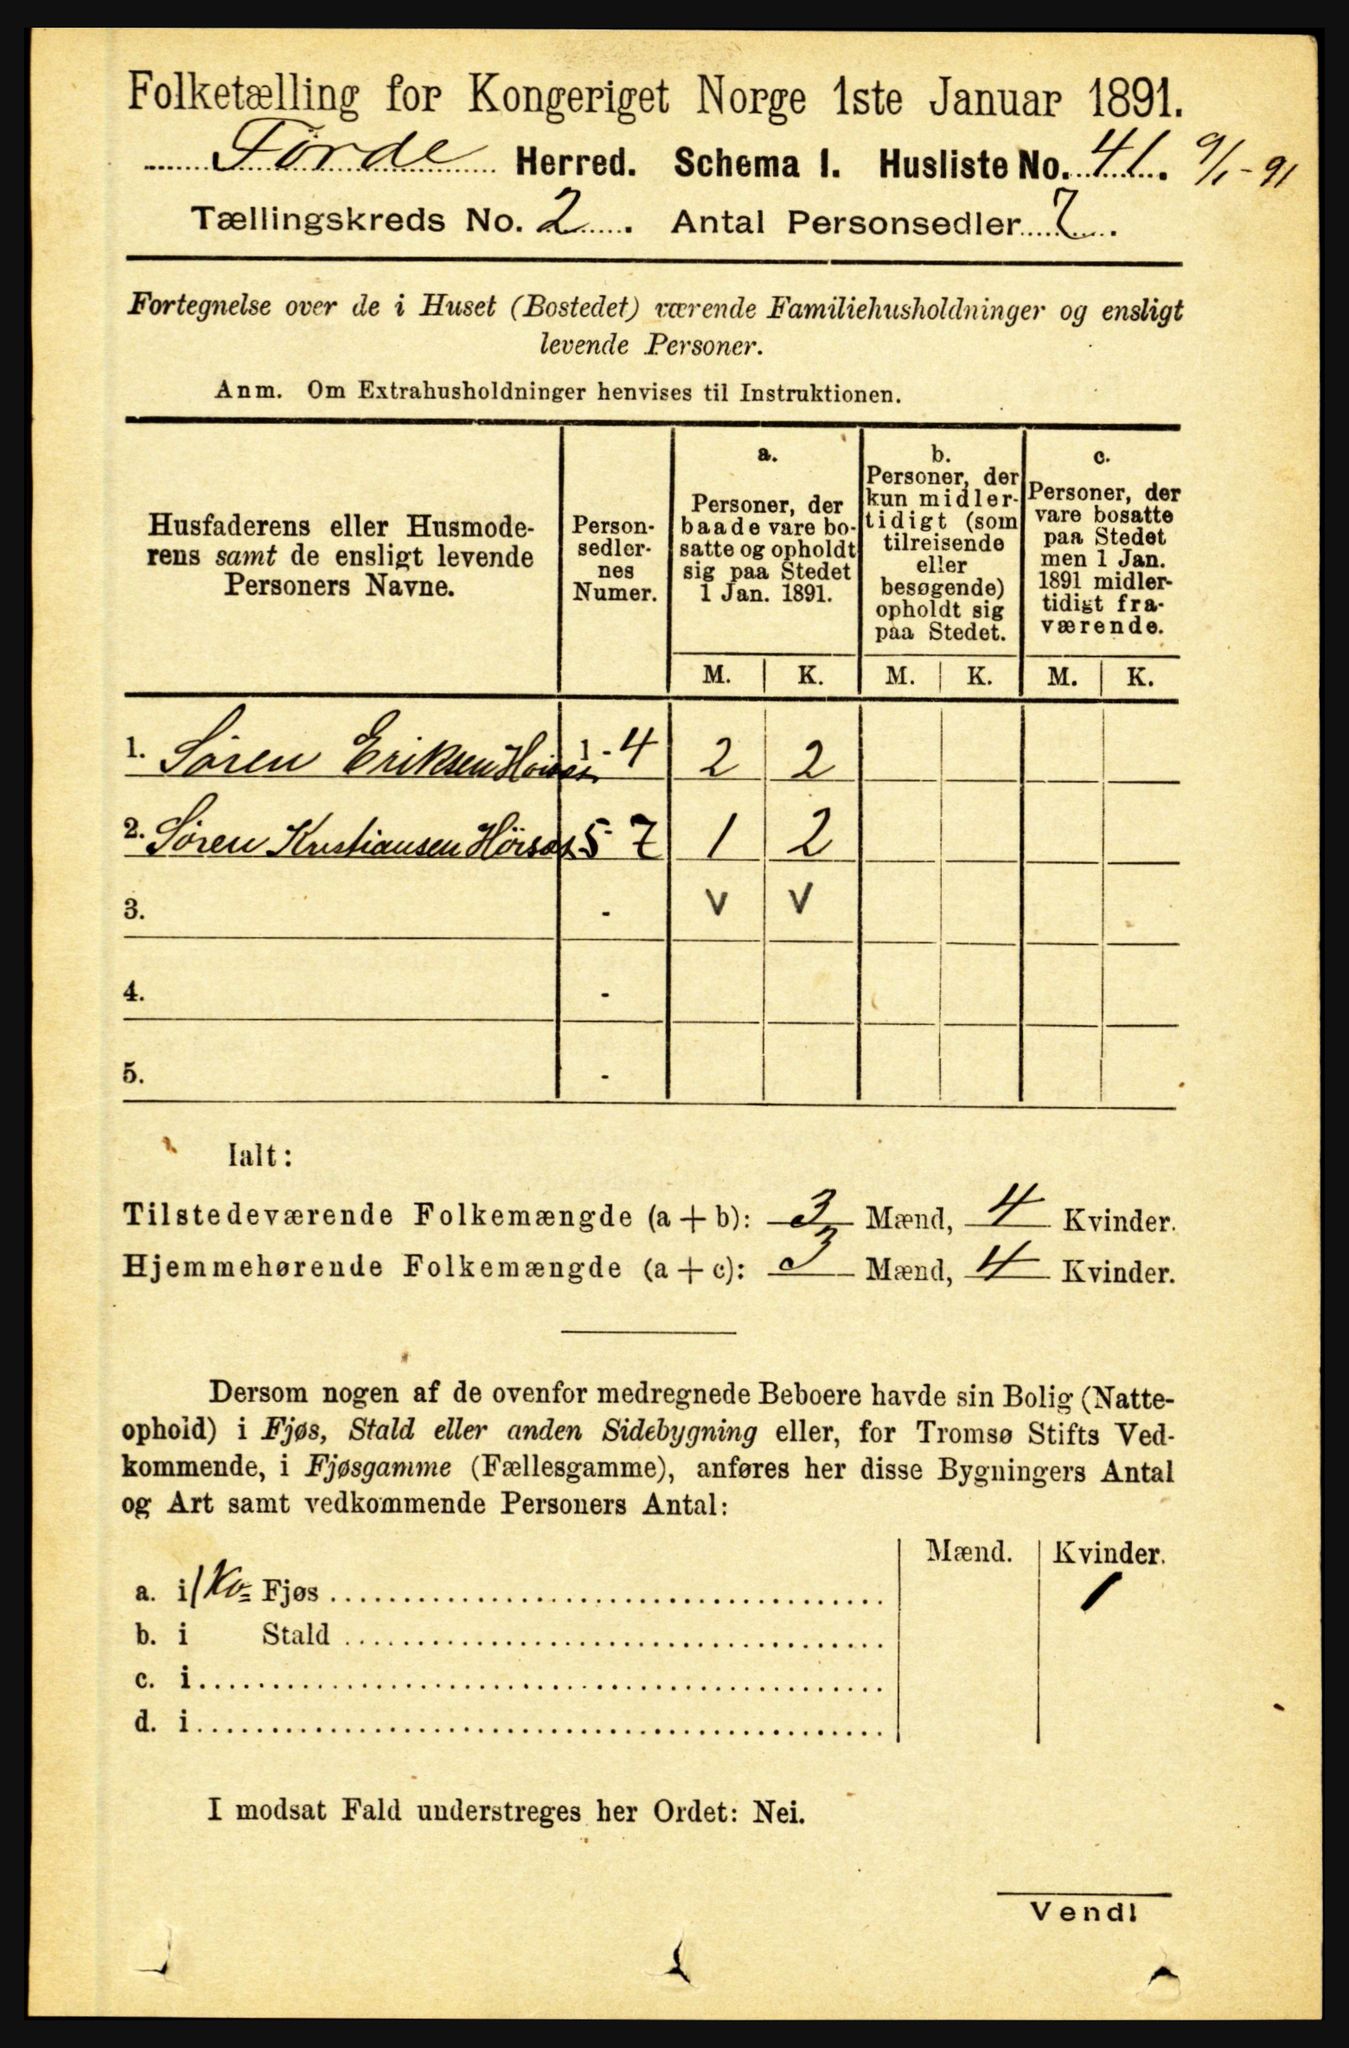 Folketælling for Kongeriget Norge 1ste Januar 1891.
Førde Herred. Schema I. Husliste No. 41. 9/1-91
Tællingskreds No. 2. Antal Personsedler 7.
Fortegnelse over de i Huset (Bostedet) værende Familiehusholdninger og ensligt
levende Personer.
Anm. Om Extrahusholdninger henvises til Instruktionen.
Husfaderens eller Husmode-
rens samt de ensligt levende
Personers Navne.
Person-
sedler-
nes
Numer.
a.
Personer, der
baade vare bo-
satte og opholdt
sig paa Stedet
1 Jan. 1891.
b.
Personer, der
kun midler-
tidigt (som
tilreisende
eller
besøgende)
opholdt sig
paa Stedet.
c.
Personer, der
vare bosatte
paa Stedet
men 1 Jan.
1891 midler-
tidigt fra-
værende.
M. K. M. K. M. K.
1. Søren Eriksen 1-4 2 2
2. Søren Kristiansen 5-7 1 2
3. - V V
4. -
5. -
Ialt:
Tilstedeværende Folkemængde (a + b): 3 Mænd, 4 Kvinder.
Hjemmehørende Folkemængde (a + c): 3 Mænd, 4 Kvinder.
Dersom nogen af de ovenfor medregnede Beboere havde sin Bolig (Natte-
ophold) i Fjøs, Stald eller anden Sidebygning eller, for Tromsø Stifts Ved-
kommende, i Fjøsgamme (Fællesgamme), anføres her disse Bygningers Antal
og Art samt vedkommende Personers Antal:
Mænd. Kvinder.
a. i 1 Ko= Fjøs 1
b. i Stald
c. i
d. i
I modsat Fald understreges her Ordet: Nei.
Vend!